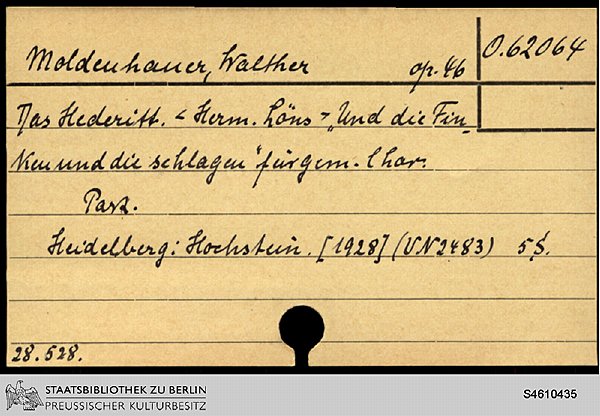 Moldenhauer, Walther op. 46
O.62064
Das Hederitt. < Herm. Löns > „Und die Fin-
ken und die schlagen" für gem. Chor.
Part.
Heidelberg: Hochstein. [1928] (VN 2483) 5 S.
28.528.
STAATSBIBLIOTHEK ZU BERLIN
PREUSSISCHER KULTURBESITZ
S4610435